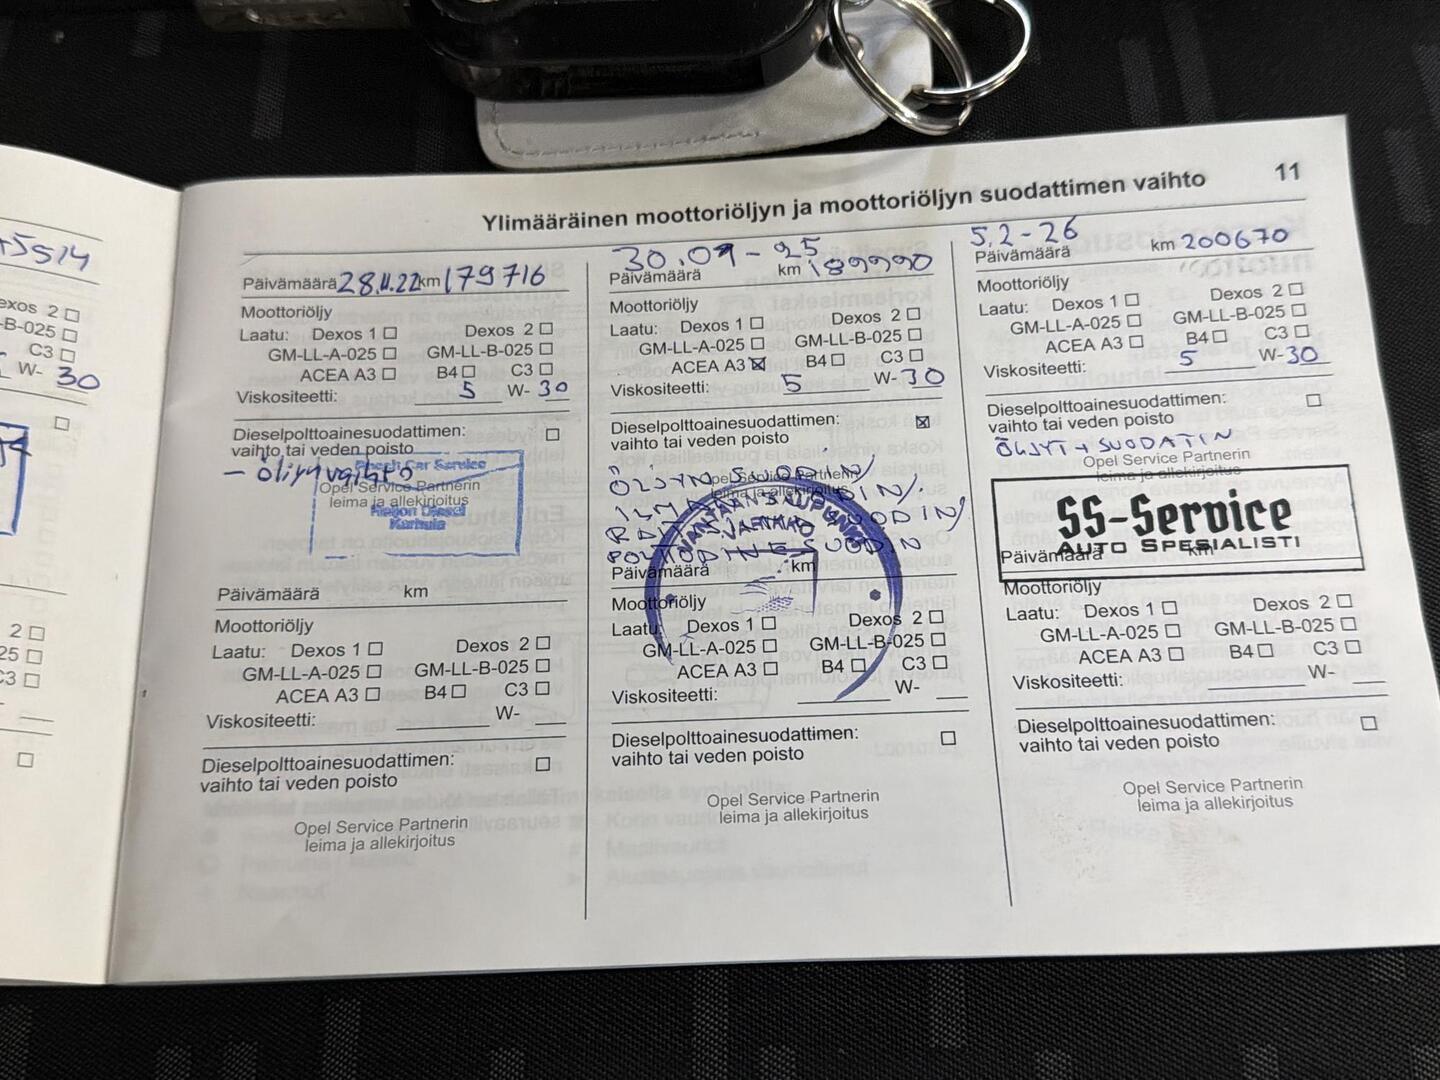 Ylimääräinen moottoriöljyn ja moottoriöljyn suodattimen vaihto 11
5514
exos 2
-B-025
C3
W- 30
2
25
C3
Päivämäärä 28.11.22 km 179716
Moottoriöljy
Laatu: Dexos 1 Dexos 2
GM-LL-A-025 GM-LL-B-025
ACEA A3 B4 C3
Viskositeetti: 5 W- 30
Dieselpolttoainesuodattimen:
vaihto tai veden poisto
- öljynvaihto
Car Service
Opel Service Partnerin
leima ja allekirjoitus
Diesel
Karhula
Päivämäärä km
Moottoriöljy
Laatu: Dexos 1 Dexos 2
GM-LL-A-025 GM-LL-B-025
ACEA A3 B4 C3
Viskositeetti: W-
Dieselpolttoainesuodattimen:
vaihto tai veden poisto
Opel Service Partnerin
leima ja allekirjoitus
30.09-25
Päivämäärä km 189990
Moottoriöljy
Laatu: Dexos 1 Dexos 2
GM-LL-A-025 GM-LL-B-025
ACEA A3 B4 C3
Viskositeetti: 5 W- 30
Dieselpolttoainesuodattimen:
vaihto tai veden poisto
ÖLJYN SUODIN,
Opel Service Partnerin
leima ja allekirjoitus
SUODIN
Päivämäärä km
Moottoriöljy
Laatu: Dexos 1 Dexos 2
GM-LL-A-025 GM-LL-B-025
ACEA A3 B4 C3
Viskositeetti: W-
Dieselpolttoainesuodattimen:
vaihto tai veden poisto
Opel Service Partnerin
leima ja allekirjoitus
5.2-26
Päivämäärä km 200670
Moottoriöljy
Laatu: Dexos 1 Dexos 2
GM-LL-A-025 GM-LL-B-025
ACEA A3 B4 C3
Viskositeetti: 5 W- 30
Dieselpolttoainesuodattimen:
vaihto tai veden poisto
ÖLJYT + SUODATIN
Opel Service Partnerin
leima ja allekirjoitus
SS-Service
AUTO SPESIALISTI
Päivämäärä km
Moottoriöljy
Laatu: Dexos 1 Dexos 2
GM-LL-A-025 GM-LL-B-025
ACEA A3 B4 C3
Viskositeetti: W-
Dieselpolttoainesuodattimen:
vaihto tai veden poisto
Opel Service Partnerin
leima ja allekirjoitus